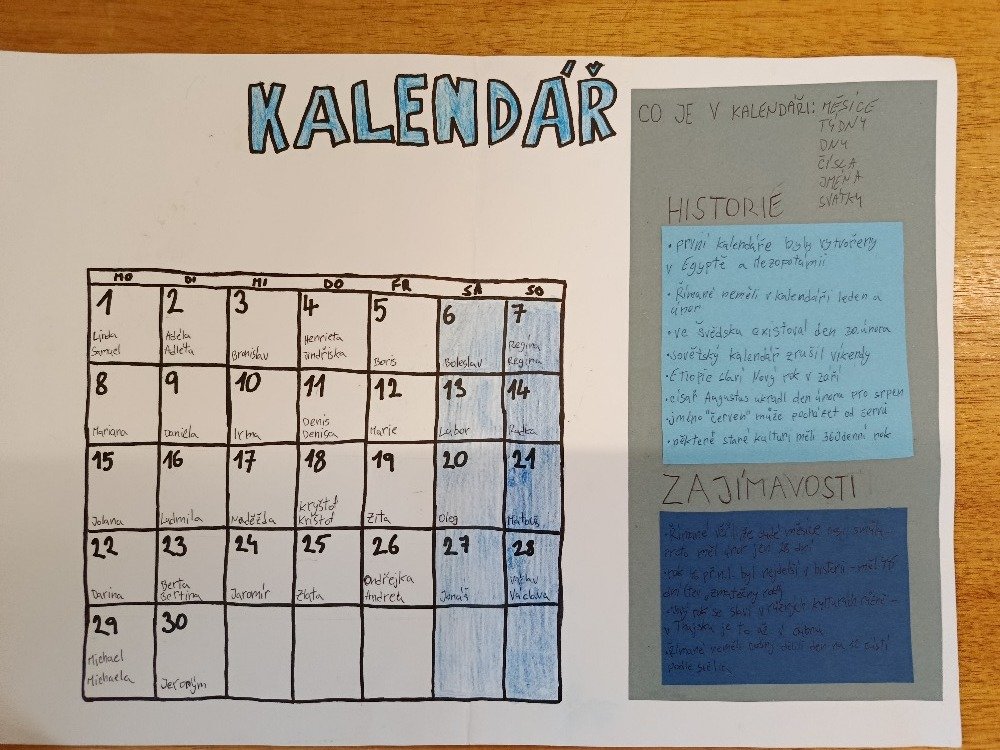 KALENDÁŘ
MO DI MI DO FR SA SO
1 2 3 4 5 6 7
Linda Adéla Henrieta Regina
Samuel Adléta Bronislav Jindřiška Boris Boleslav Regína
8 9 10 11 12 13 14
Denis
Mariana Daniela Irma Denisa Marie Lubor Radka
15 16 17 18 19 20 21
Kryštof
Jolana Ludmila Naděžda Krištof Zita Oleg Matouš
22 23 24 25 26 27 28
Berta Ondřejka Václav
Darina Bertina Jaromír Zlata Andrea Jonáš Václava
29 30
Michael
Michaela Jeroným
CO JE V KALENDÁŘI: MĚSÍCE
TÝDNY
DNY
ČÍSLA
JMÉNA
SVÁTKY
HISTORIE
• první kalendáře byly vytvořeny
v Egyptě a Mezopotámii
• Římané neměli v kalendáři leden a
únor
• ve Švédsku existoval den 30.února
• sovětský kalendář zrušil víkendy
• Etiopie slaví Nový rok v září
• císař Augustus ukradl den února pro srpen
• jméno "červen" může pocházet od červů
• některé staré kultury měli 360denní rok
ZAJÍMAVOSTI
• Římané věřili, že sudé měsíce nosí smůlu -
proto měl únor jen 28 dní
rok 46 př.n.l. byl nejdelší v historii - měl
dní (tzv. zmatečný rok)
rok se slaví v různých kulturách různě -
v Thajsku je to až v dubnu
• Římané neměli hodiny dělili den na 12 částí
podle světla